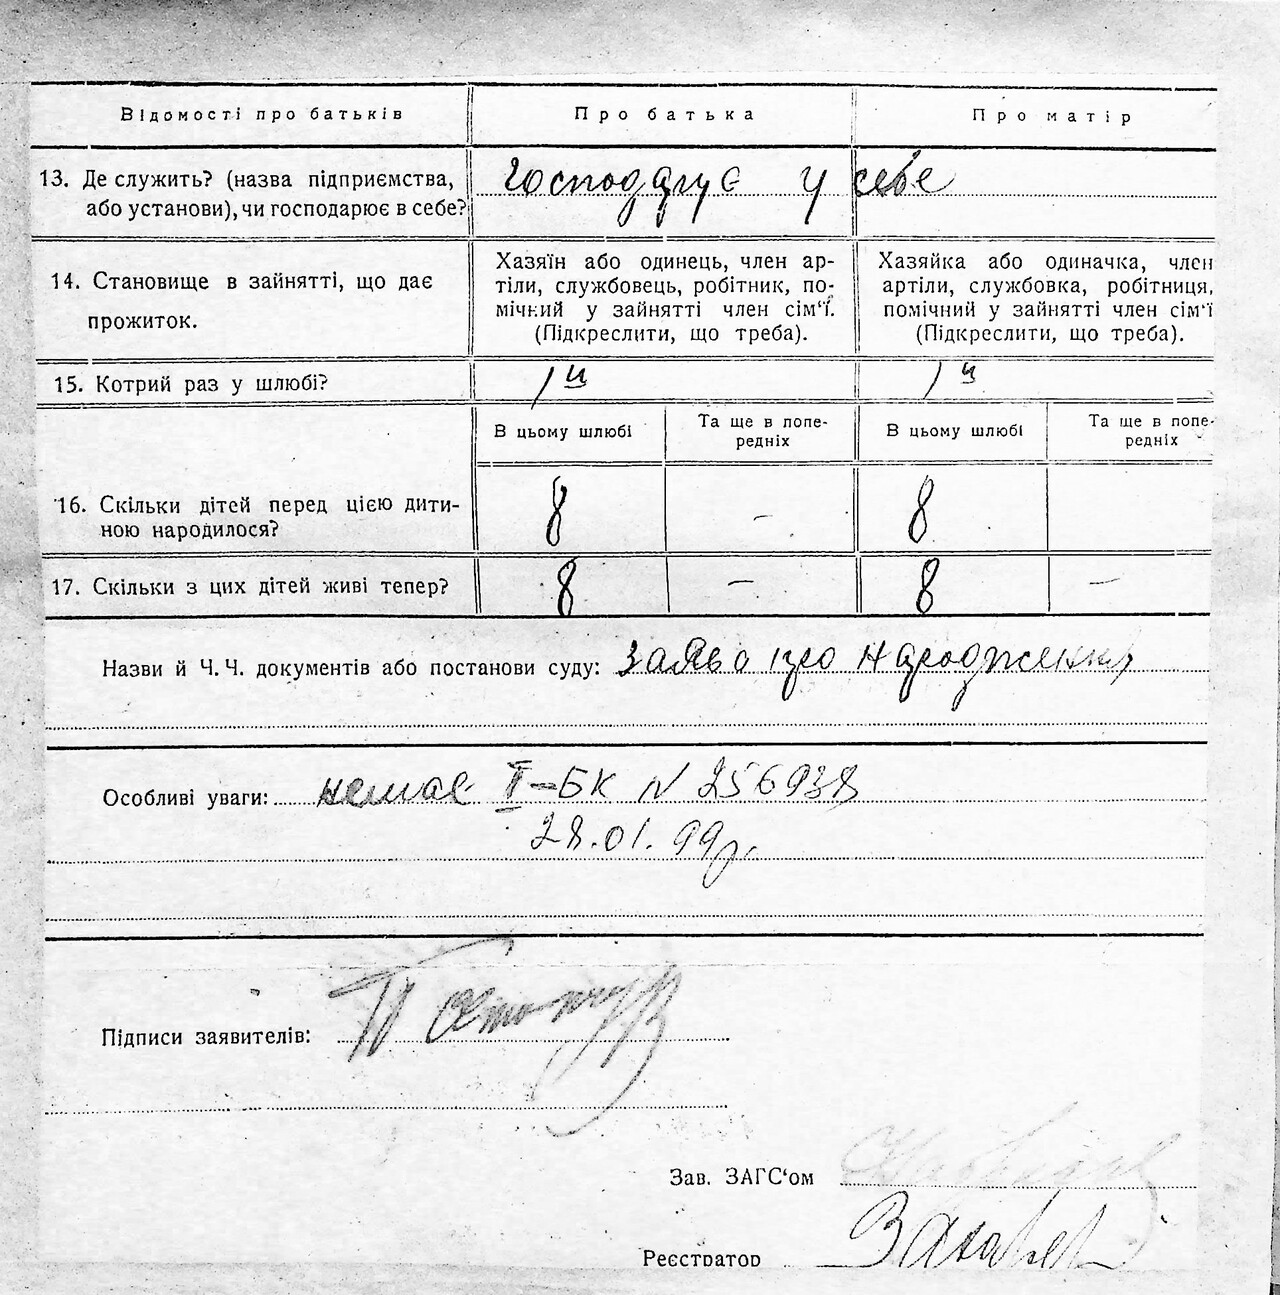 Відомості про батьків Про батька Про матір
13. Де служить? (назва підприємства, або установи), чи господарює в себе? Господарує у себе
14. Становище в зайнятті, що дає прожиток.
Хазяїн або одинець, член ар-
тіли, службовець, робітник, по-
мічний у зайнятті член сім'ї.
(Підкреслити, що треба).
Хазяйка або одиначка, член
артіли, службовка, робітниця,
помічний у зайнятті член сім'ї
(Підкреслити, що треба).
15. Котрий раз у шлюбі? 1й 1й
В цьому шлюбі Та ще в попе-
редніх В цьому шлюбі Та ще в попе-
редніх
16. Скільки дітей перед цією дити-
ною народилося? 8 – 8
17. Скільки з цих дітей живі тепер? 8 – 8 –
Назви й Ч.Ч. документів або постанови суду: заява про народження
Особливі уваги: немає II-БК N 256938
28.01.99р.
Підписи заявителів:
Зав. ЗАГС'ом
Реєстратор